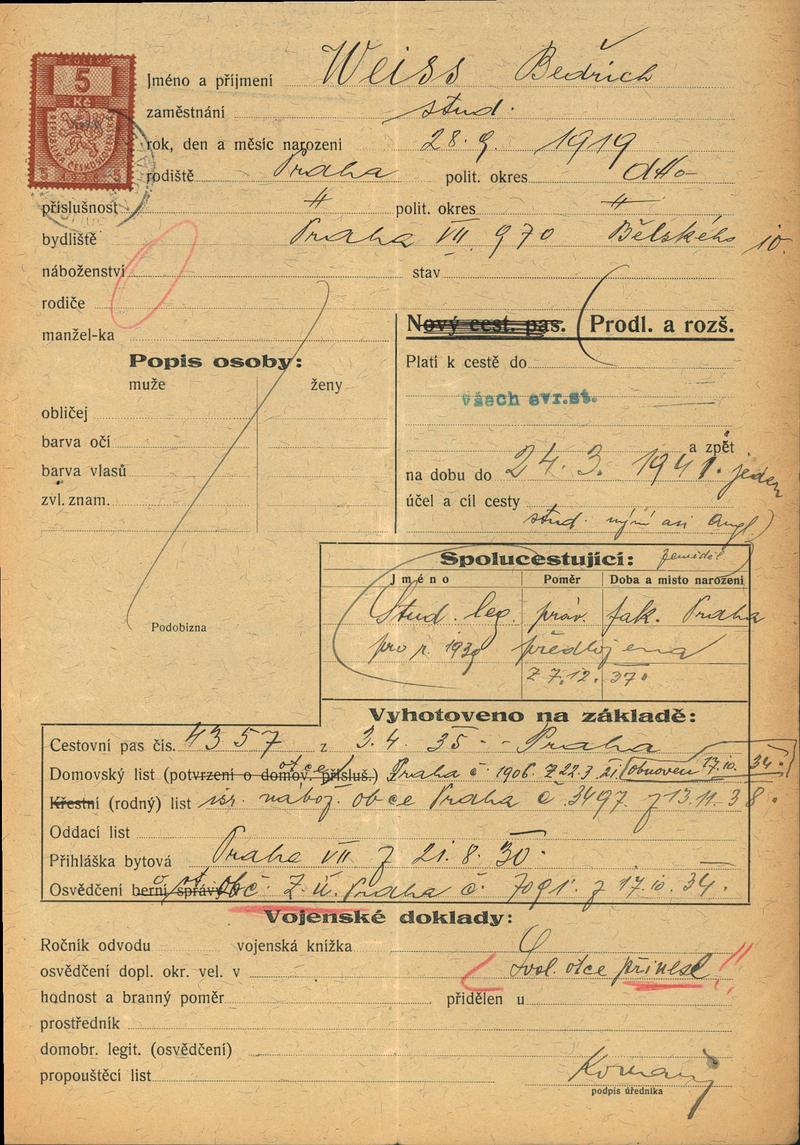 KOLEK
5
Kč
REPUBLIKA ČESKOSLOVENSKÁ
Jméno a příjmení Weiss Bedřich
zaměstnání stud.
rok, den a měsíc narození 28. 9. 1919
rodiště Praha polit. okres dtto
příslušnost " polit. okres "
bydliště Praha VII. 970 Bělského 10.
náboženství stav
rodiče
manžel-ka
Nový cest. pas. Prodl. a rozš.
Popis osoby:
muže ženy
Platí k cestě do
všech evr.st.
obličej
barva očí
a zpět
barva vlasů
na dobu do 24. 3. 1941. jeden
zvl. znam.
účel a cíl cesty
stud. nyní asi Angl
Spolucestující: zeměděl
Jméno Poměr Doba a místo narození
Stud. leg. práv. fak. Praha
pro r. 1939 předložena
Z 7.12. 37.
Podobizna
Vyhotoveno na základě:
Cestovní pas čís. 4357 z 3.4. 35 - Praha
Domovský list (potvrzení o domov. přísluš.) otce Praha č. 1906. Z 22.3.21. (obnoven 17.10. 34.
Křestní (rodný) list isr. nábož. obce Praha č. 3497 z 13.11.38.
Oddací list
Přihláška bytová Praha VII z 21. 8. 30.
Osvědčení berní správy obč. Z. ú. Praha č. 7091. z 17.10. 34.
Vojenské doklady:
Ročník odvodu vojenská knížka
osvědčení dopl. okr. vel. v Svol. otce přinesl!!
hodnost a branný poměr přidělen u
prostředník
domobr. legit. (osvědčení)
propouštěcí list
podpis úředníka